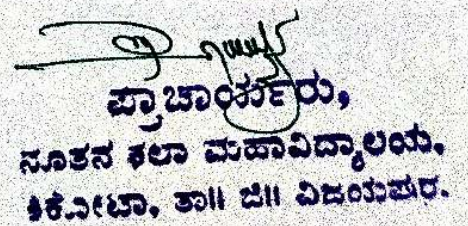 ಪ್ರಾಚಾರ್ಯರು,
ನೂತನ ಕಲಾ ಮಹಾವಿದ್ಯಾಲಯ,
ತಿಕೋಟಾ, ತಾ॥ ಜಿ॥ ವಿಜಯಪುರ.